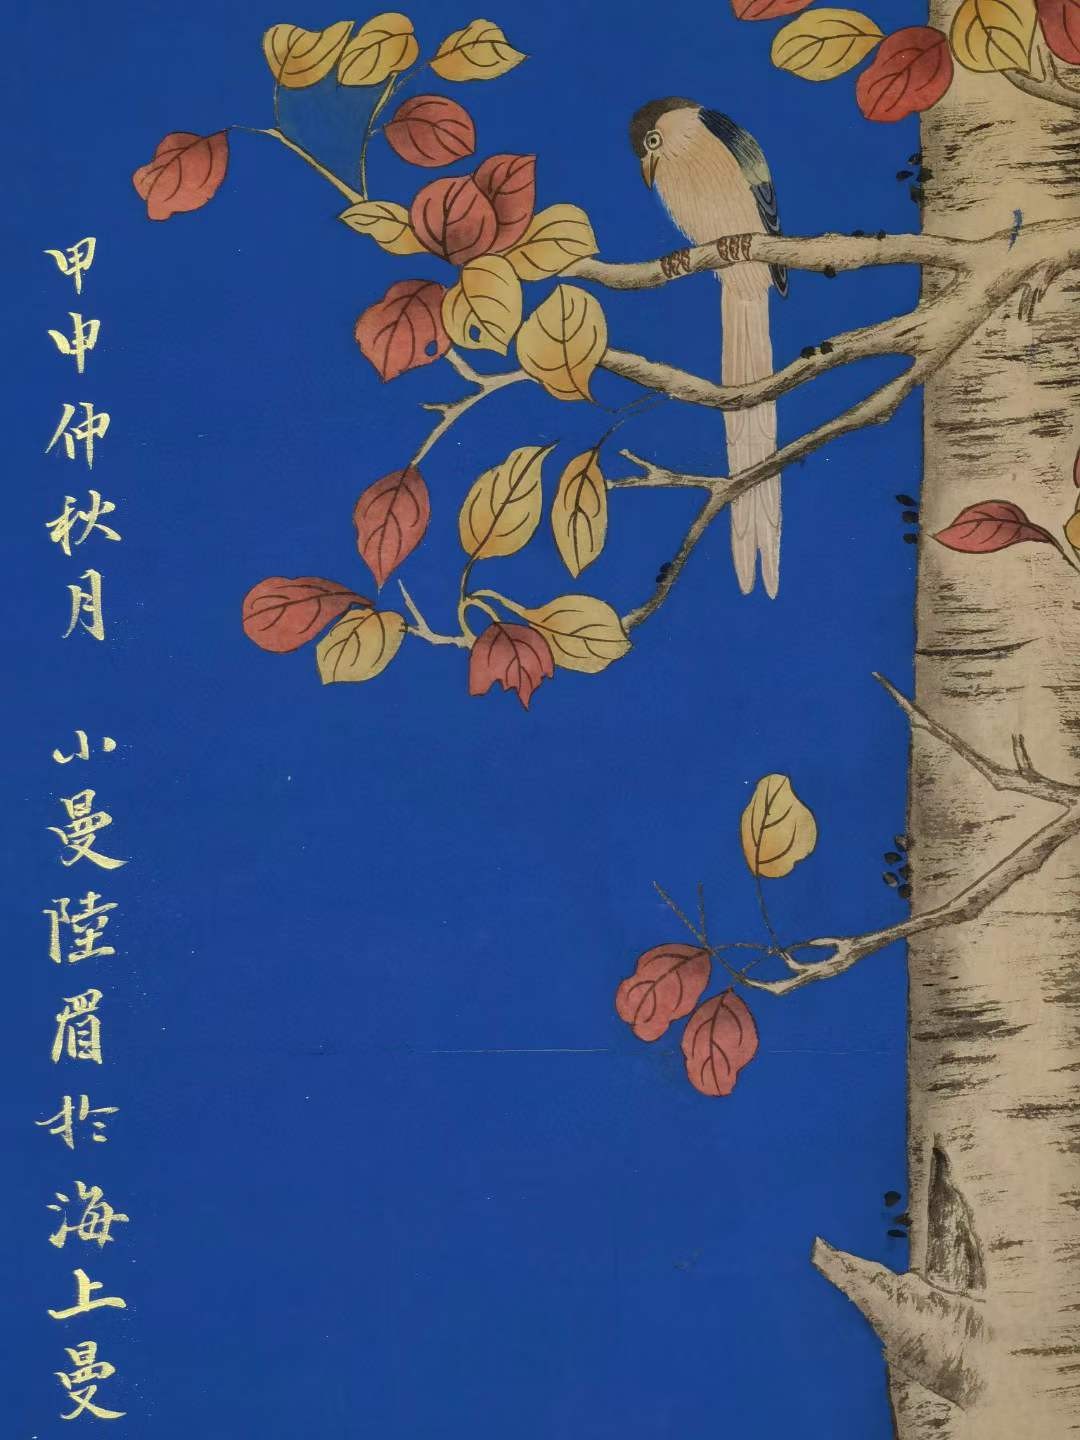 甲申仲秋月 小曼陸眉於海上曼